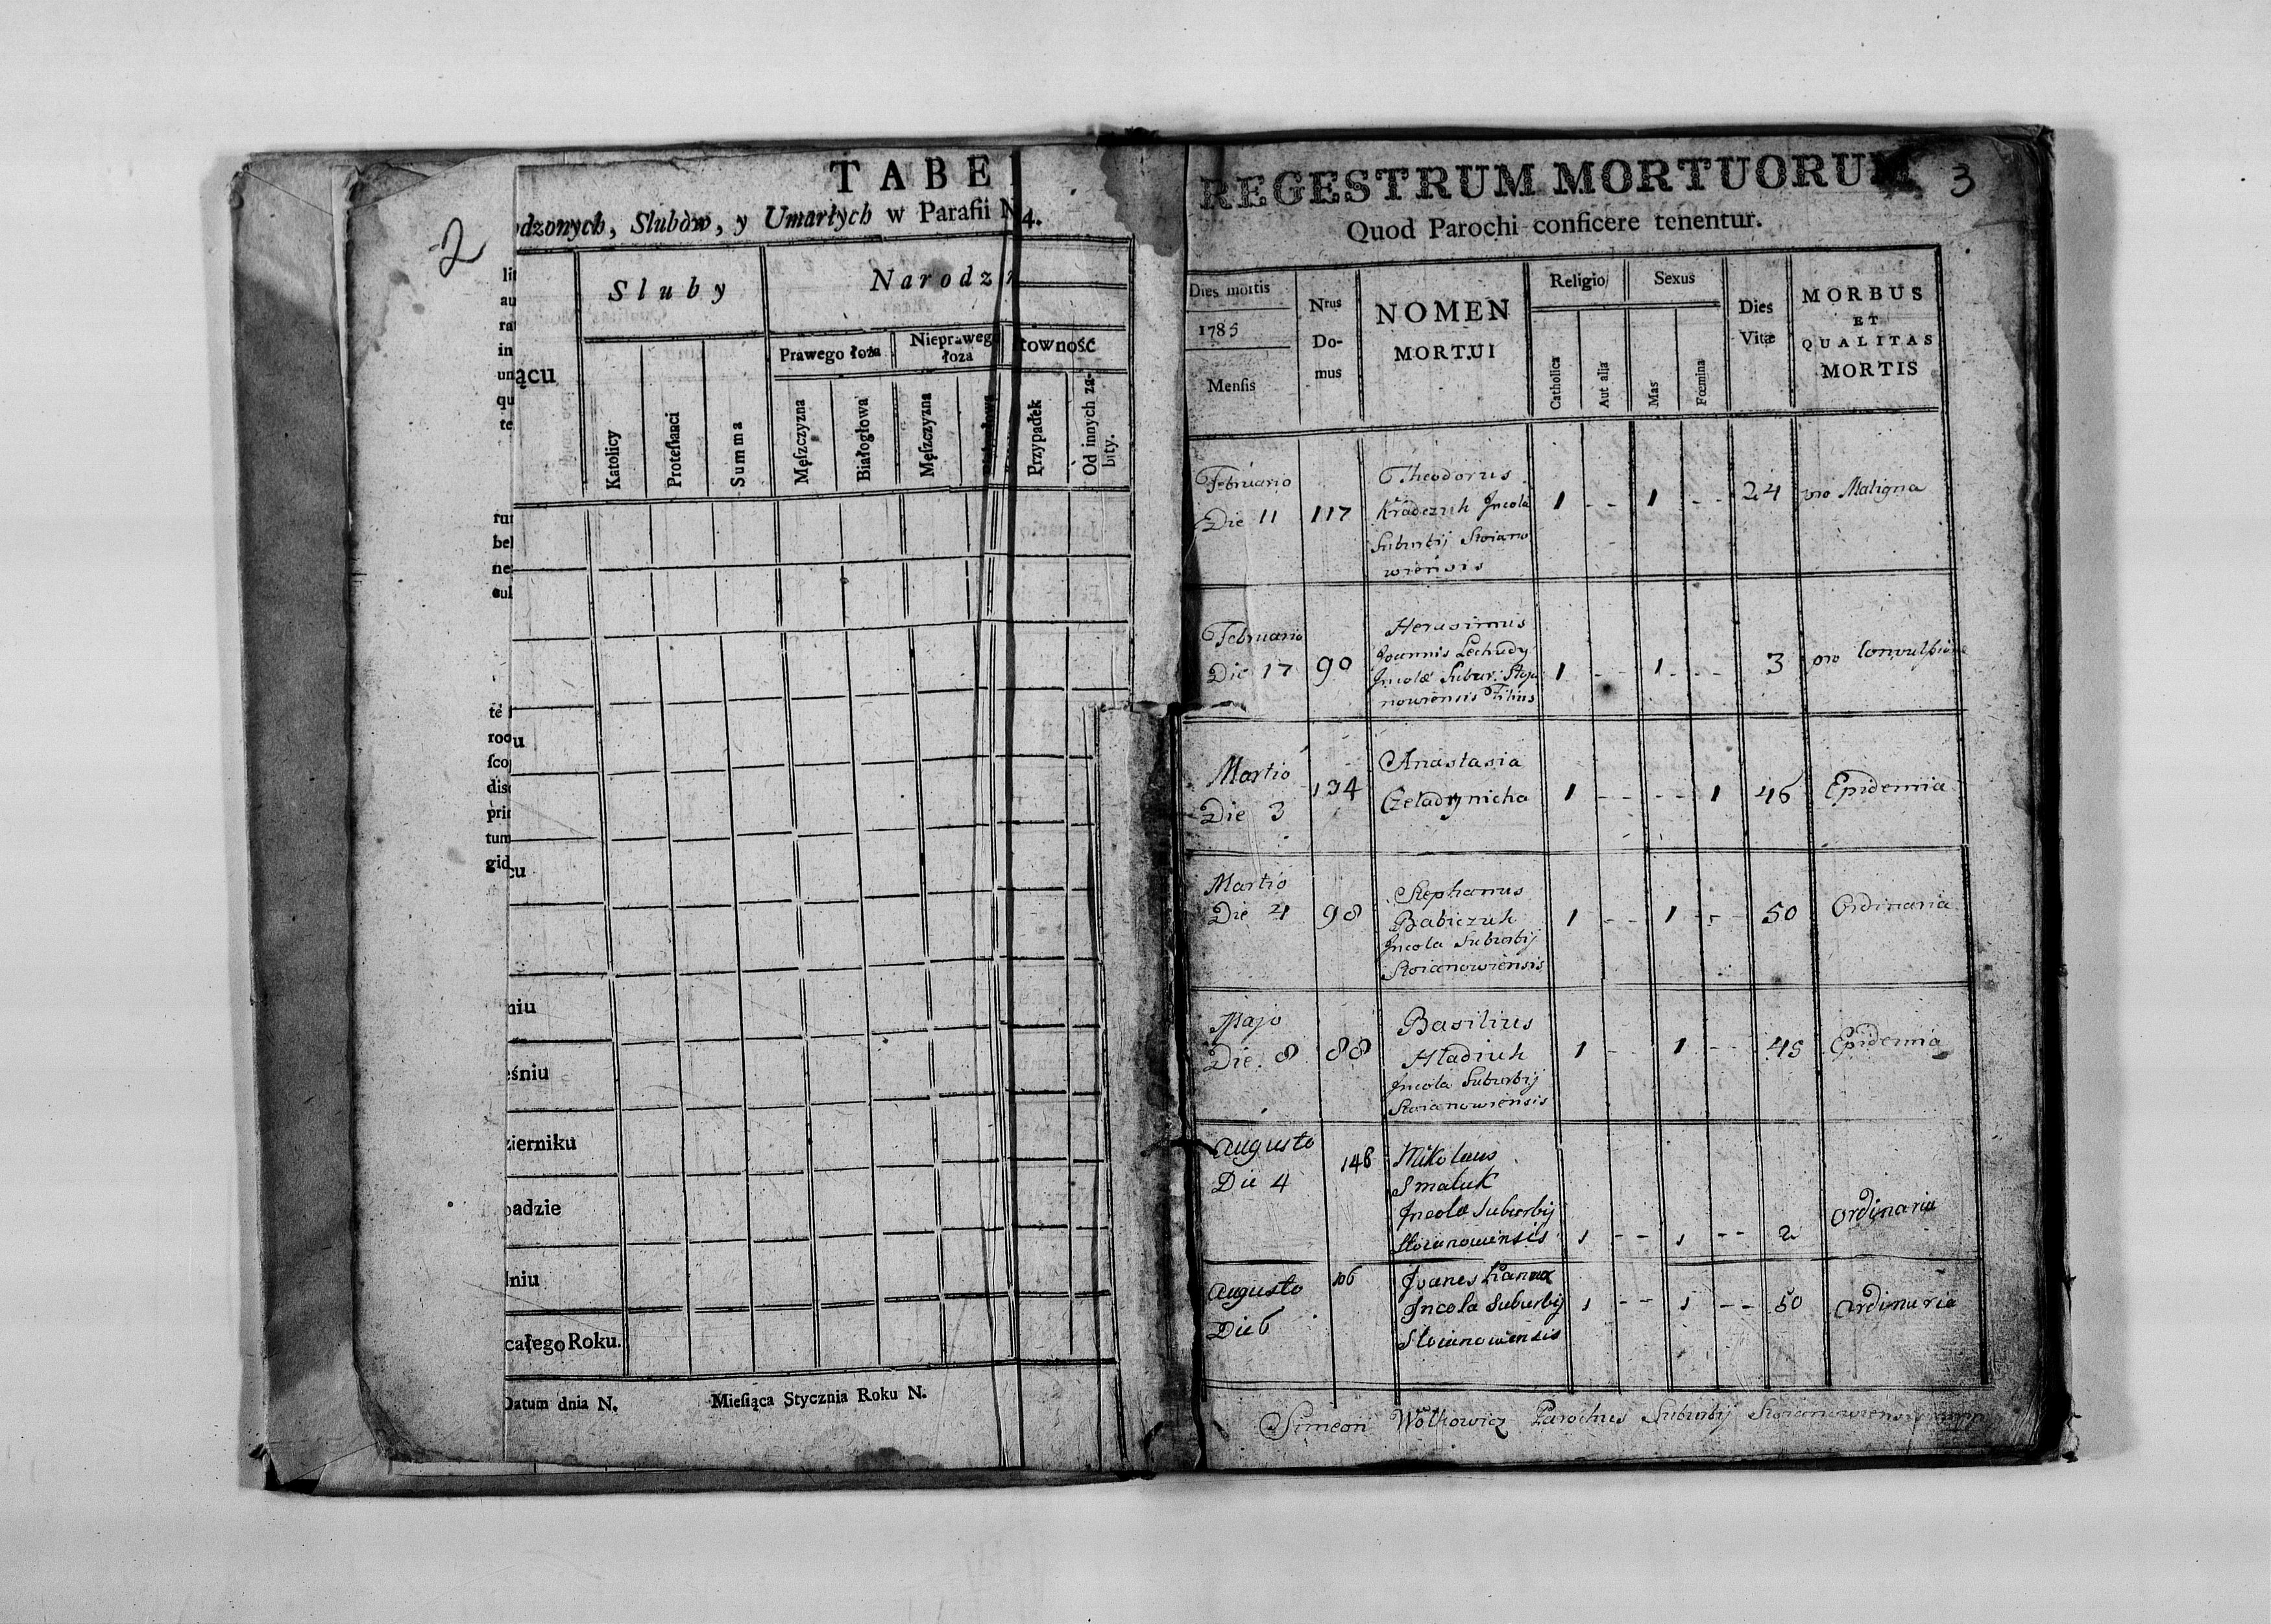 2
TABE
odzonych, Slubòw, y Umarłych w Parafii N
4.
lit
au
rat
in
un
qu
te
ącu
Sluby
Narodz
Prawego łoża
Nieprawego
łoza
towność
Katolicy
Proteſtanci
Summa
Męſzczyzna
Białogłowa
Męſzczyzna
Przypadek
Od innych za-
bity.
rur
bel
ne
cul
te
roc
u
ſco
diſc
prir
tum
gid
cu
niu
eśniu
zierniku
padzie
dniu
całego Roku.
Datum dnia N.
Mieſiąca Stycznia Roku N.
REGESTRUM MORTUORUM
3
Quod Parochi conficere tenentur.
Dies mortis
1785
Menſis
Nrus
Do-
mus
NOMEN
MORTUI
Religio
Catholica
Aut alja
Sexus
Mas
Fœmina
Dies
Vitæ
MORBUS
ET
QUALITAS
MORTIS
Februario
Die 11
117
Theodorus
Kradczuk Incola
Suburbij Stoiano
wiensis
1 - - 1 - - 24
Maligna
Februario
Die 17
90
Herasimus
Joannis Lechudy
Incolæ Subur: Stoja
nowiensis Filius
1 - - 1 - - 3
pro Convulsione
Martio
Die 3
134
Anastasia
Czeladynicha
1 - - - - 1 46
Epidemia
Martio
Die 4
98
Stephanus
Babiczuk
Incola Suburbij
Stoianowiensis
1 - - 1 - - 50
Ordinaria
Majo
Die 8
88
Basilius
Hladiuk
Incola Suburbij
Stoianowiensis
1 - - 1 - - 45
Epidemia
Augusto
Die 4
148
Nikolaus
Smaluk
Incola Suburbij
Stoianowiensis
1 - - 1 - - 2
Ordinaria
Augusto
Die 6
106
Joanes
Incola Suburbij
Stoianowiensis
1 - - 1 - - 50
Ordinaria
Simeon Wolkowicz Parochus Suburbij Stoianowiensis mpp